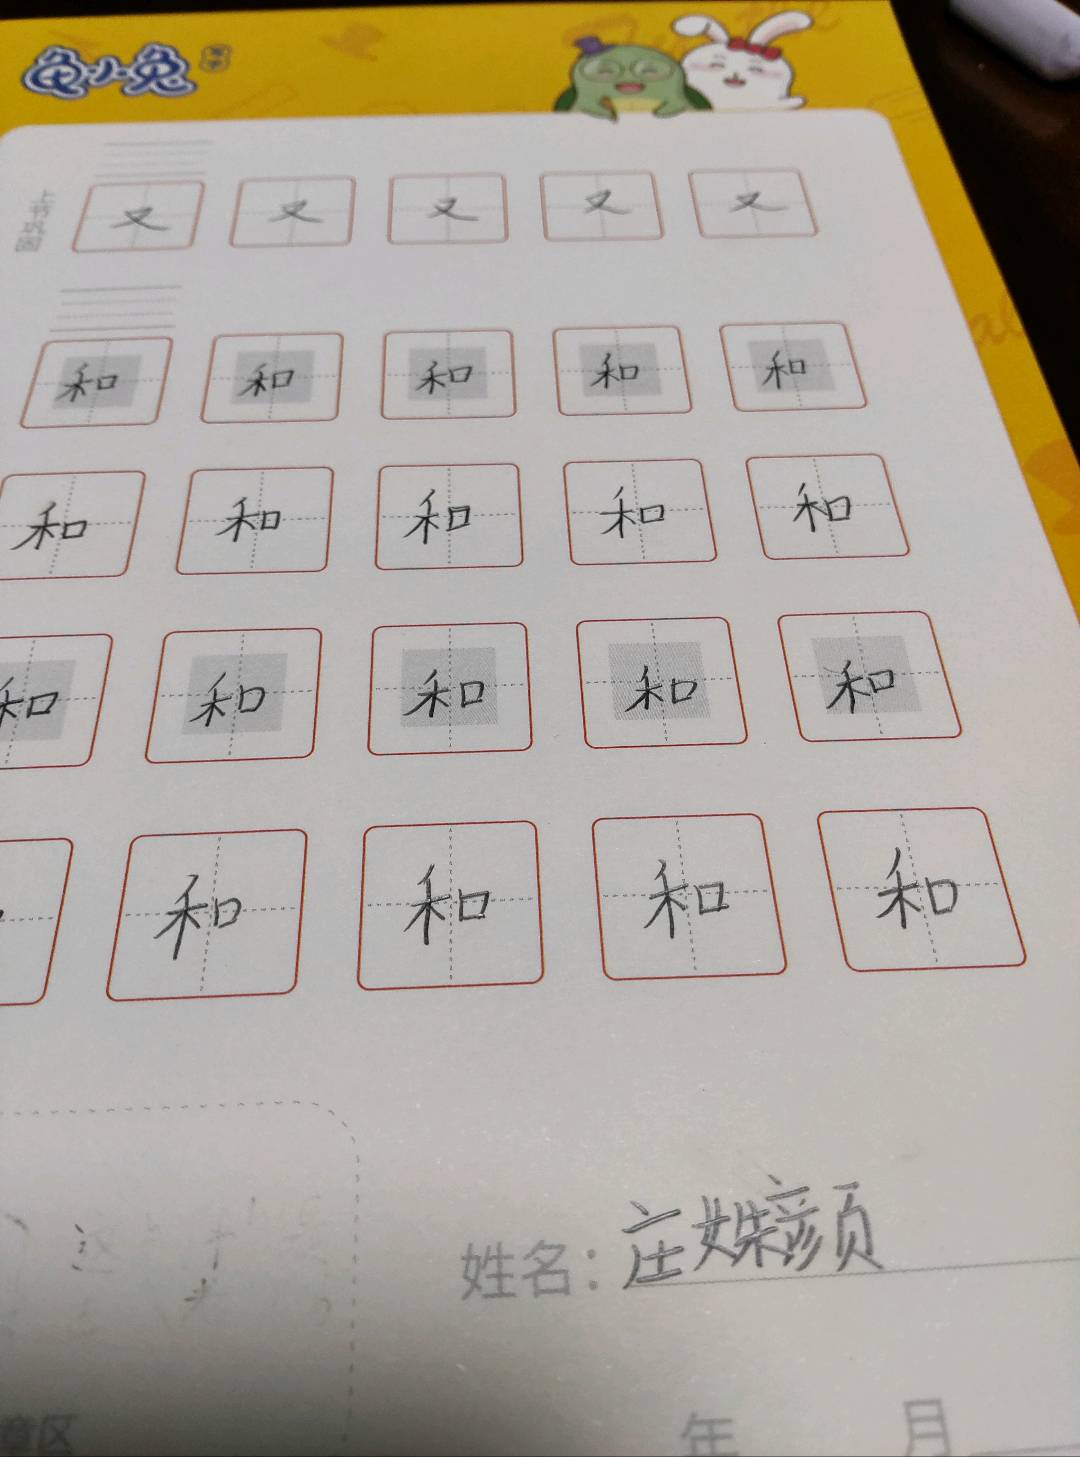 龟小兔
又 又 又 又 又
和 和 和 和 和
和 和 和 和 和
和 和 和 和 和
和 和 和 和
姓名：庄姝颜
章区
年 月